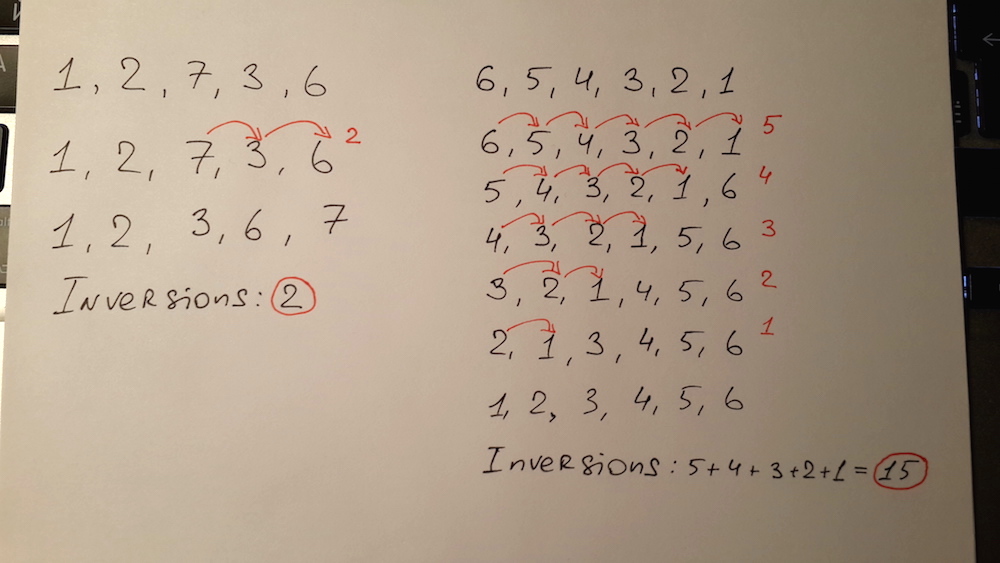 1, 2, 7, 3, 6
1, 2, 7, 3, 6 2
1, 2, 3, 6, 7
Inversions: 2
6, 5, 4, 3, 2, 1
6, 5, 4, 3, 2, 1 5
5, 4, 3, 2, 1, 6 4
4, 3, 2, 1, 5, 6 3
3, 2, 1, 4, 5, 6 2
2, 1, 3, 4, 5, 6 1
1, 2, 3, 4, 5, 6
Inversions: 5+4+3+2+1=15